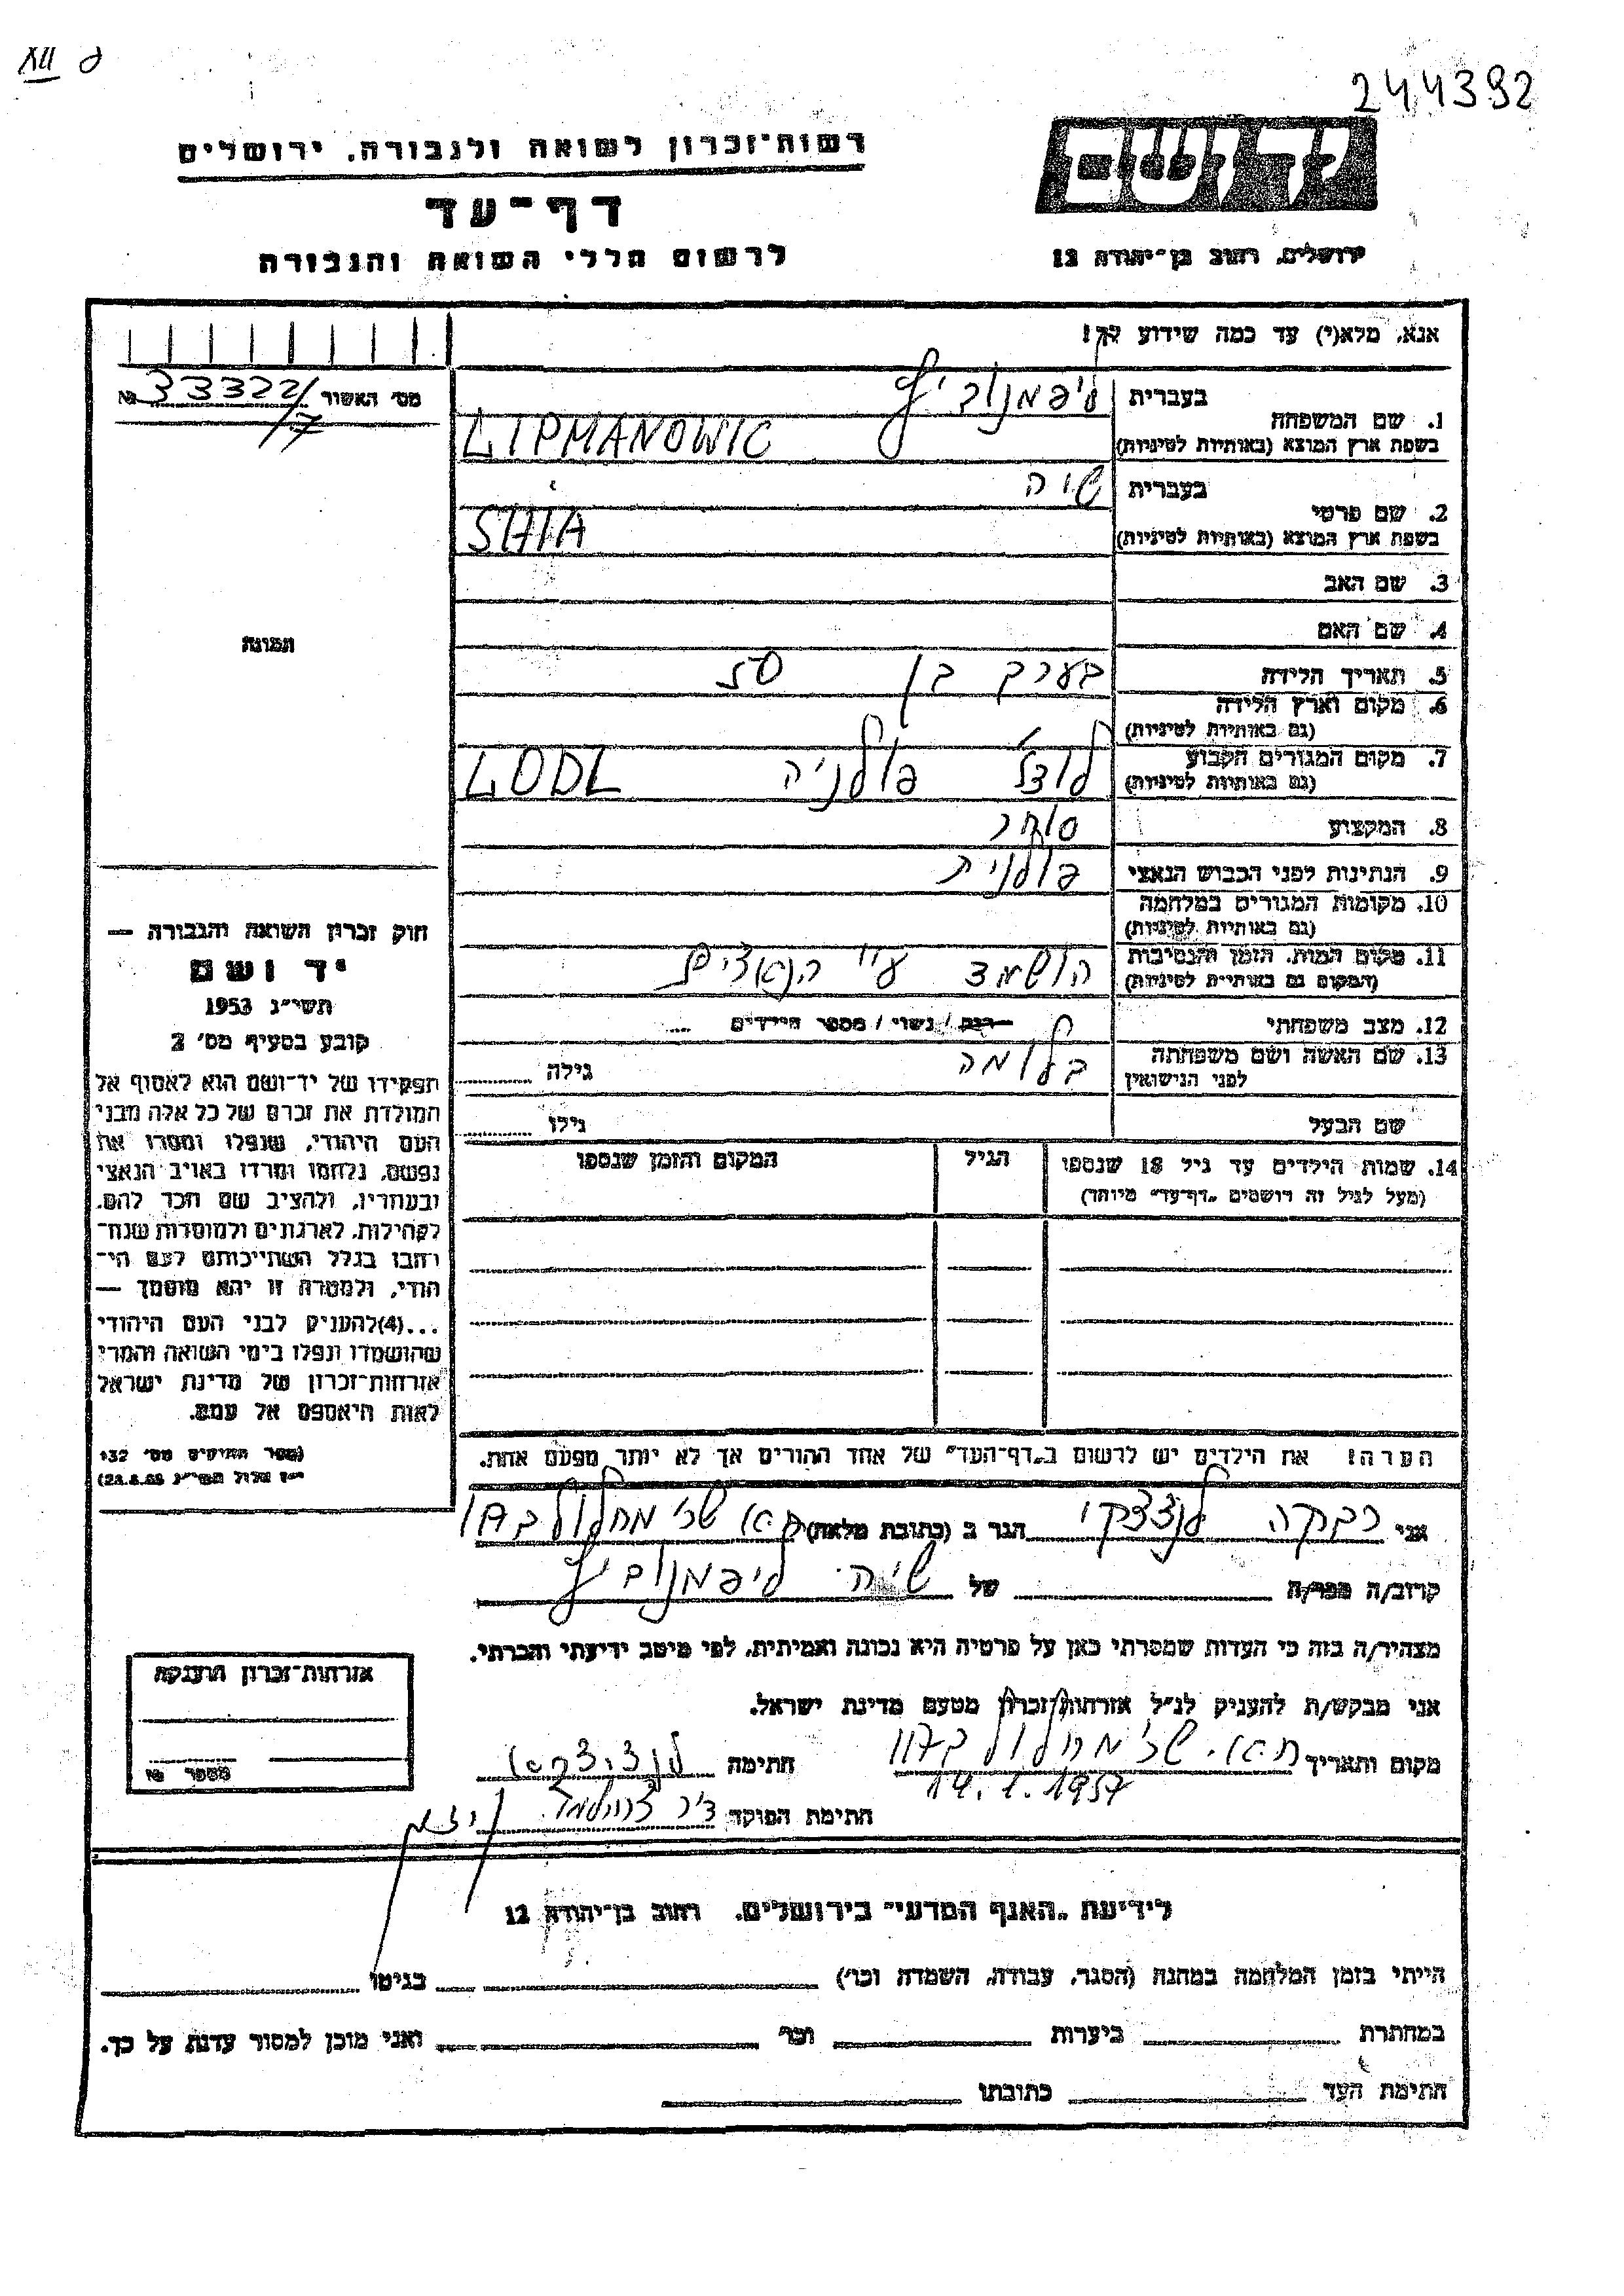 XII
244392
יד ושם
רשות־זכרון לשואה ולגבורה, ירושלים
דף־עד
לרשום חללי השואה והגבורה
ירושלים, רחוב בן־יהודה 12
אנא, מלא(י) עד כמה שידוע לך!
מס׳ האשור № 33322/7
1. שם המשפחה
בעברית ליפמנוביץ
בשפת ארץ המוצא (באותיות לטיניות) LIPMANOWIC
2. שם פרטי
בעברית שיה
בשפת ארץ המוצא (באותיות לטיניות) SAIA
3. שם האב
4. שם האם
5. תאריך הלידה בערך בן 50
6. מקום וארץ הלידה
(גם באותיות לטיניות)
7. מקום המגורים הקבוע לודז׳ פולניה LODZ
(גם באותיות לטיניות)
8. המקצוע סוחר
9. הנתינות לפני הכבוש הנאצי פולנית
10. מקומות המגורים במלחמה
(גם באותיות לטיניות)
11. מקום המות, הזמן והנסיבות הושמד ע״י הנאצים
(המקום גם באותיות לטיניות)
12. מצב משפחתי רוק / נשוי / מספר הילדים
13. שם האשה ושם משפחתה בלומה גילה
לפני הנישואין
שם הבעל גילו
14. שמות הילדים עד גיל 18 שנספו הגיל המקום והזמן שנספו
(מעל לגיל זה רושמים „דף־עד״ מיוחד)
הערה: את הילדים יש לרשום ב„דף־העד״ של אחד ההורים אך לא יותר מפעם אחת.
תמונה
חוק זכרון השואה והגבורה —
יד ושם
תשי״ג 1953
קובע בסעיף מס׳ 2
תפקידו של יד־ושם הוא לאסוף אל
המולדת את זכרם של כל אלה מבני
העם היהודי, שנפלו ומסרו את
נפשם, נלחמו ומרדו באויב הנאצי
ובעוזריו, ולהציב שם וזכר להם,
לקהילות, לארגונים ולמוסדות שנח־
רבו בגלל השתייכותם לעם הי־
הודי, ולמטרה זו יהא מוסמך —
...(4)להעניק לבני העם היהודי
שהושמדו ונפלו בימי השואה והמרי
אזרחות־זכרון של מדינת ישראל
לאות היאספם אל עמם.
(ספר החוקים מס׳ 132
י״ז אלול תשי״ג 28.8.53)
אני רבקה הגר ב (כתובת מלאה)
קרוב/ה מכר/ה של שיה ליפמנוביץ
מצהיר/ה בזה כי העדות שמסרתי כאן על פרטיה היא נכונה ואמיתית, לפי מיטב ידיעתי והכרתי.
אני מבקש/ת להעניק לנ״ל אזרחות־זכרון מטעם מדינת ישראל.
מקום ותאריך 14.1.1957 חתימה
חתימת הפוקד
אזרחות־זכרון הוענקה
מספר №
לידיעת „האגף המדעי״ בירושלים, רחוב בן־יהודה 12
הייתי בזמן המלחמה במחנה (הסגר, עבודה, השמדה וכו׳) בגיטו
במחתרת ביערות וכו׳ ואני מוכן למסור עדות על כך.
חתימת העד כתובתו